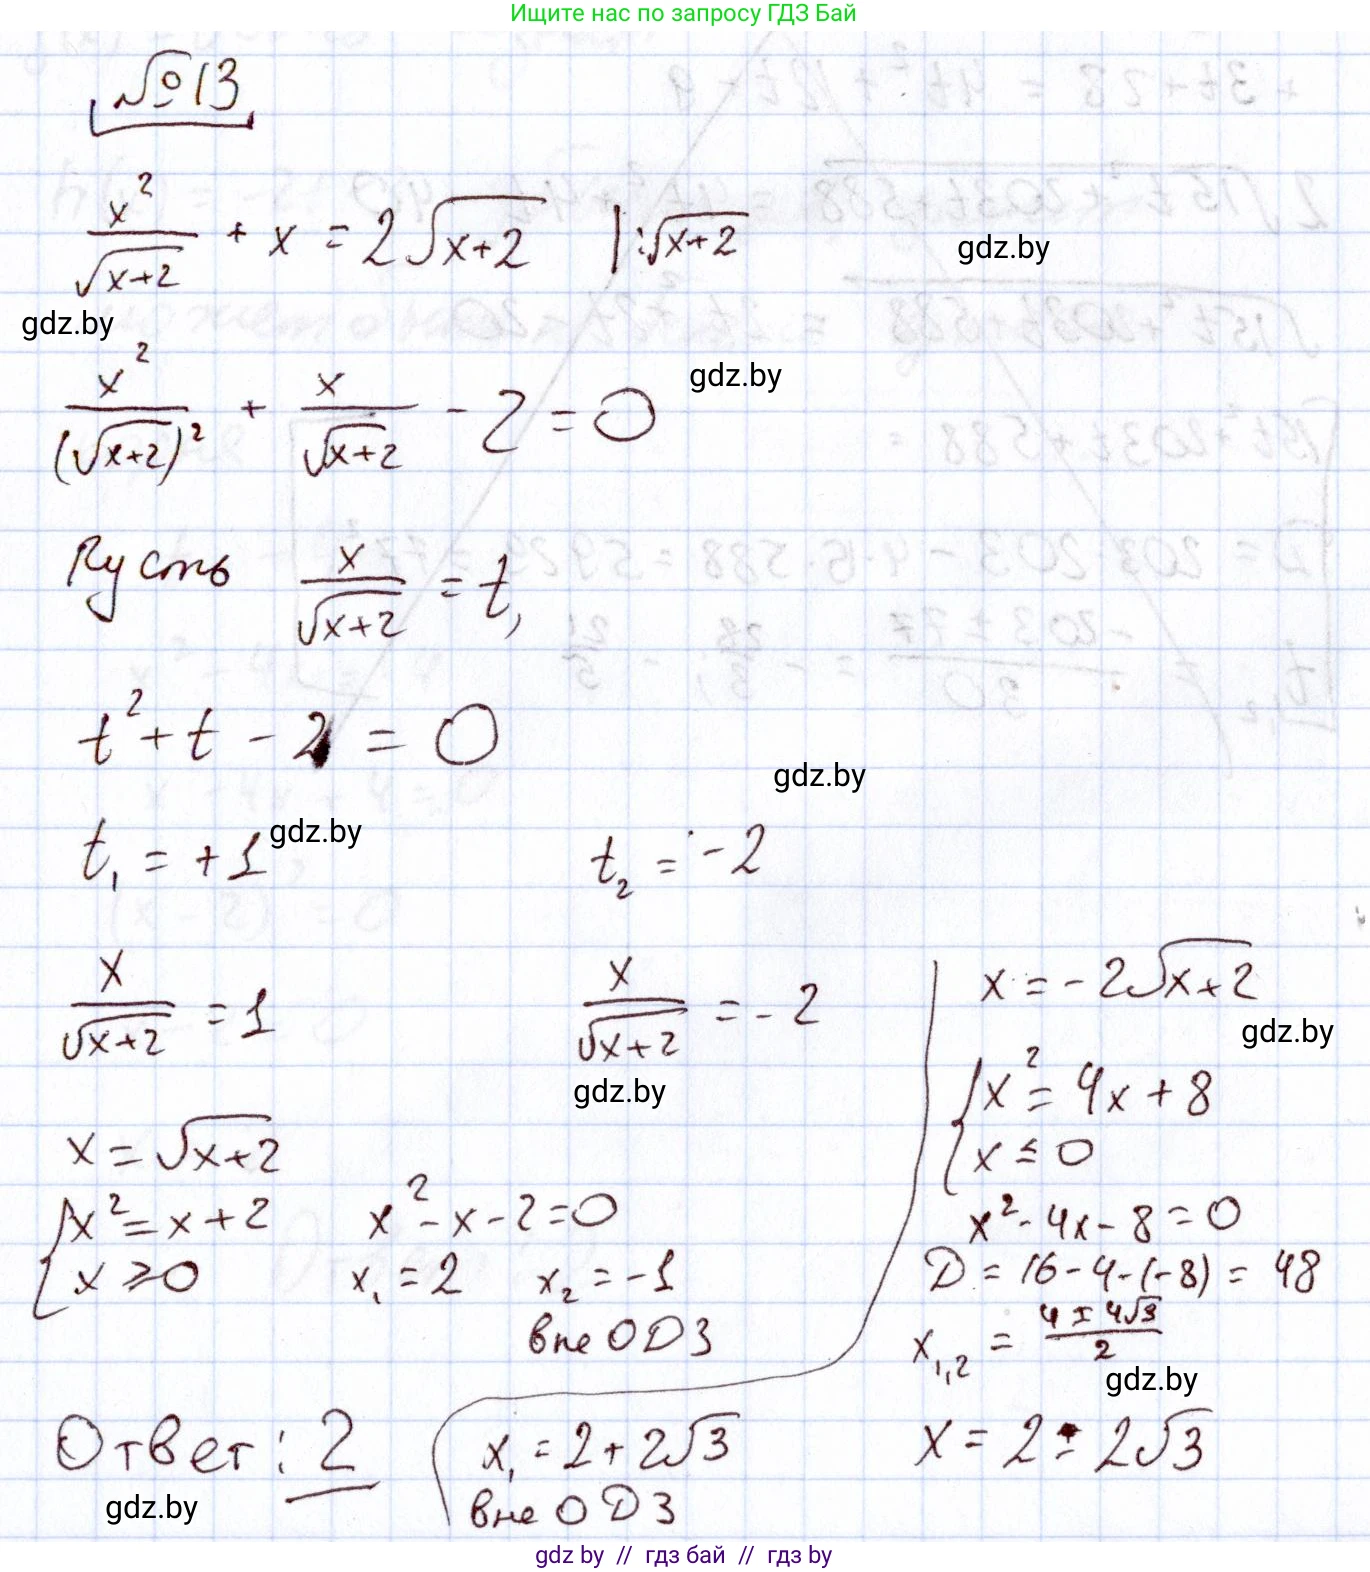 Ищите нас по запросу ГДЗ Бай
№13
x²/√(x+2) + x = 2√(x+2) |:√(x+2)
gdz.by
gdz.by
x²/(√(x+2))² + x/√(x+2) - 2 = 0
gdz.by
Пусть x/√(x+2) = t,
t² + t - 2 = 0
gdz.by
t₁ = +1
gdz.by
t₂ = -2
x/√(x+2) = 1
x/√(x+2) = -2
gdz.by
x = √(x+2)
{x² = x + 2
x ≥ 0
x² - x - 2 = 0
x₁ = 2 x₂ = -1
вне ОДЗ
x = -2√(x+2)
gdz.by
{x² = 4x + 8
x ≤ 0
x² - 4x - 8 = 0
D = 16 - 4 - (-8) = 48
x₁,₂ = (4 ± 4√3)/2
gdz.by
x = 2 ± 2√3
x₁ = 2 + 2√3
вне ОДЗ
Ответ: 2
gdz.by
gdz by // гдз бай // гдз by